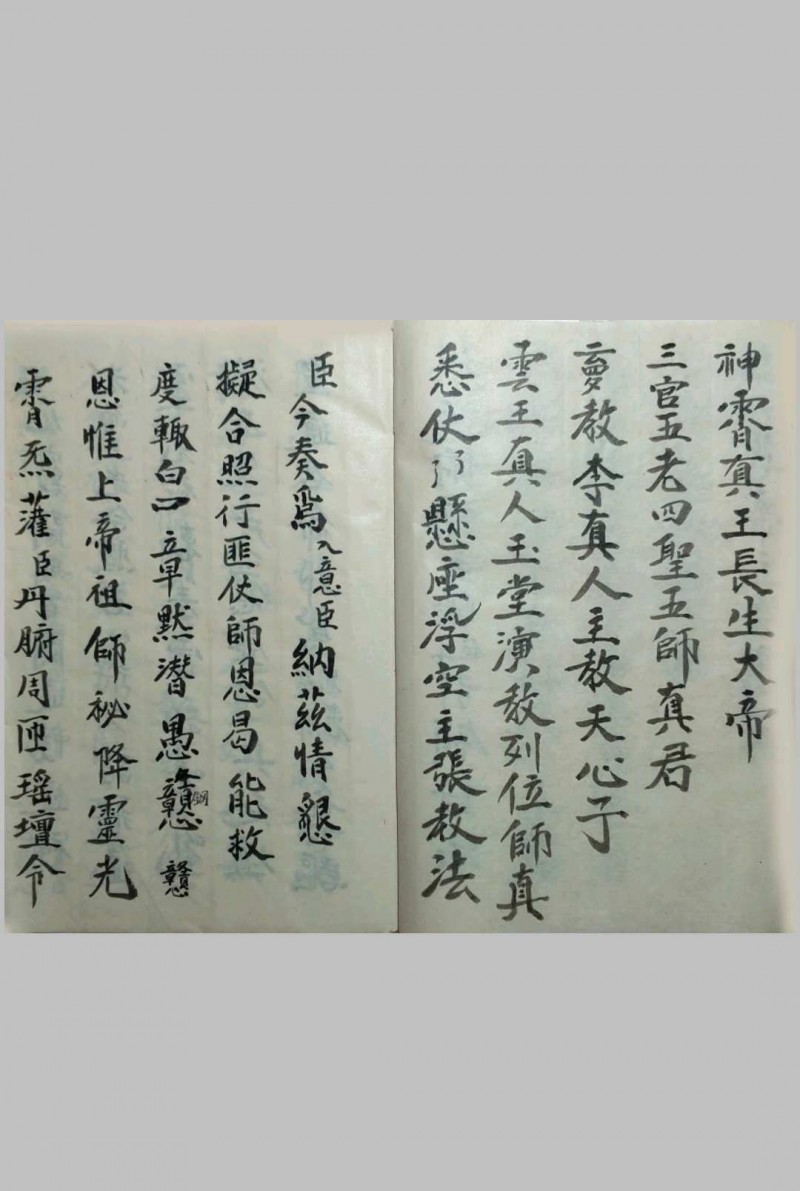 神霄真王長生大帝
三官五老四聖五師真君
教李真人主教天心子
雲王真人玉堂演教列位師真
悉仗 懸座浮空主張教法
臣今奏為入意臣納茲情懇
擬合照行匪仗師恩曷能救
度輙白 章默潛愚戇 戇
恩惟上帝祖師祕降靈光
霄炁灌臣丹腑周匝瑶壇令